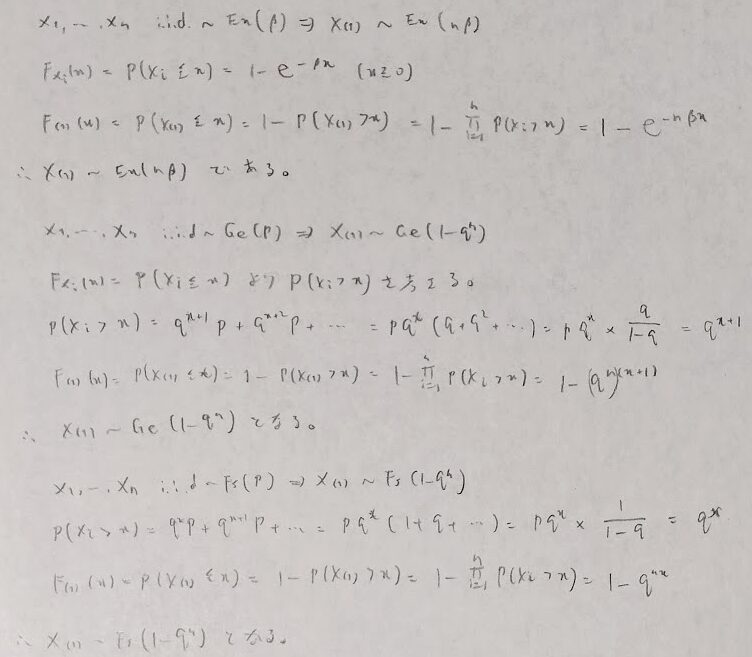 X₁, …, Xₙ i.i.d. ~ Ex(β) ⇒ X₍₁₎ ~ Ex(nβ)
F_{Xᵢ}(x) = P(Xᵢ ≦ x) = 1 - e^{-βx} (x≧0)
F₍₁₎(x) = P(X₍₁₎ ≦ x) = 1 - P(X₍₁₎ > x) = 1 - ∏_{i=1}^{n} P(Xᵢ > x) = 1 - e^{-nβx}
∴ X₍₁₎ ~ Ex(nβ) である。
X₁, …, Xₙ i.i.d ~ Ge(p) ⇒ X₍₁₎ ~ Ge(1-qⁿ)
F_{Xᵢ}(x) = P(Xᵢ ≦ x) より P(Xᵢ > x) を考える。
P(Xᵢ > x) = q^{x+1} p + q^{x+2} p + … = pq^x (q + q² + …) = pq^x × \frac{q}{1-q} = q^{x+1}
F₍₁₎(x) = P(X₍₁₎ ≦ x) = 1 - P(X₍₁₎ > x) = 1 - ∏_{i=1}^{n} P(Xᵢ > x) = 1 - (qⁿ)^{(x+1)}
∴ X₍₁₎ ~ Ge(1-qⁿ) となる。
X₁, …, Xₙ i.i.d ~ Fs(p) ⇒ X₍₁₎ ~ Fs(1-qⁿ)
P(Xᵢ > x) = q^x p + q^{x+1} p + … = pq^x (1 + q + …) = pq^x × \frac{1}{1-q} = q^x
F₍₁₎(x) = P(X₍₁₎ ≦ x) = 1 - P(X₍₁₎ > x) = 1 - ∏_{i=1}^{n} P(Xᵢ > x) = 1 - q^{nx}
∴ X₍₁₎ ~ Fs(1-qⁿ) となる。